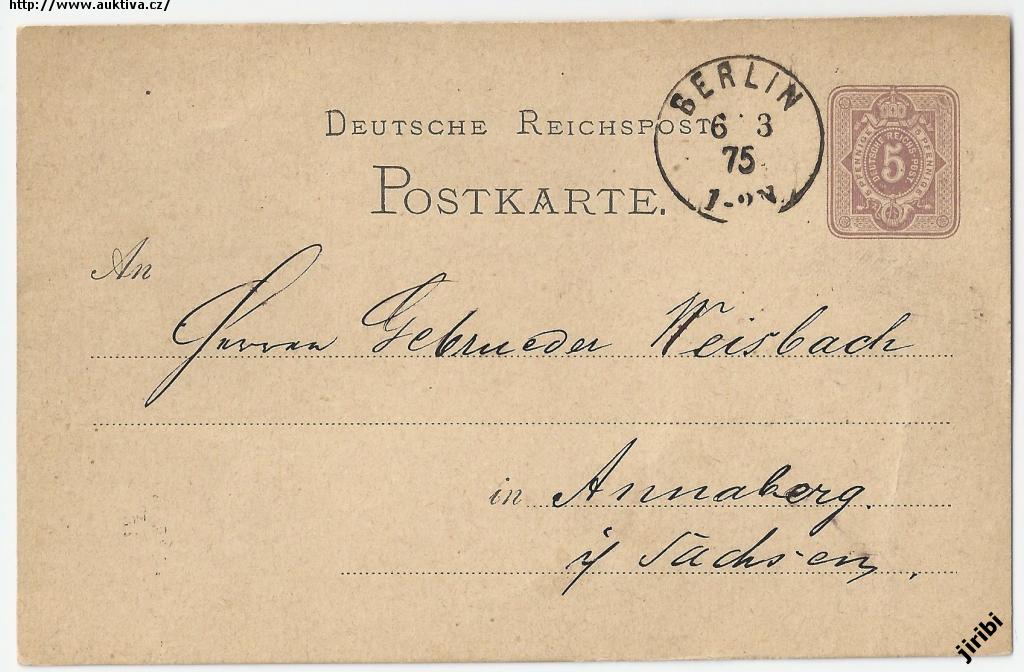 http://www.auktiva.cz/
DEUTSCHE REICHSPOST
POSTKARTE.
BERLIN
6 3
75
5 PFENNIGE
5 PFENNIGE
DEUTSCHE REICHS-POST
5
An
Herren Gebrueder Weisbach
in Annaberg.
i/ Sachsen,
jiribi